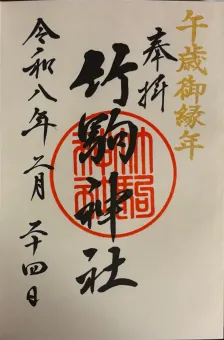 午歳御縁年
奉拝
竹駒神社
令和八年二月二十四日